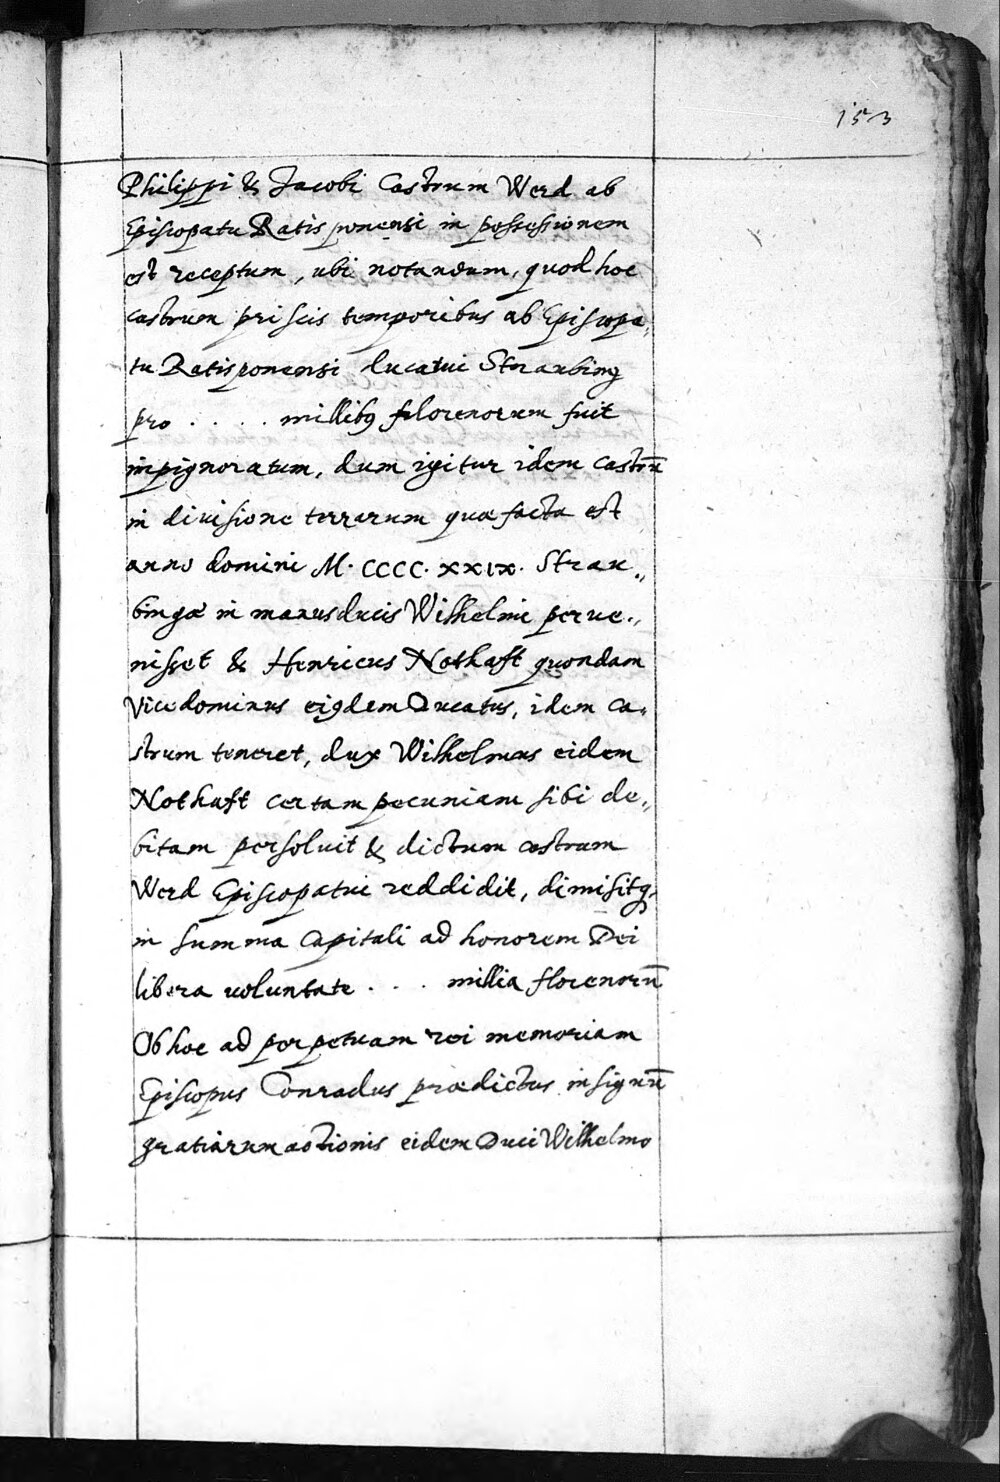 153
Philippi & Jacobi Castrum Werd ab
Episcopatu Ratisponensi in possessionem
est receptum, ubi notandum, quod hoc
castrum priscis temporibus ab Episcopa„
tu Ratisponensi lucatui Straubing
pro . . . . millibꝫ florenorum fuit
impignoratum, dum igitur idem castrū
in divisione terrarum quæ facta est
anno domini M. CCCC. XXIX. Strau„
bingæ in manus ducis Wilhelmi perve„
nisset & Henricus Nothaft quondam
Vicedominus eiꝰdem Ducatus, idem ca„
strum teneret, dux Wilhelmus eidem
Nothaft certam pecuniam sibi de„
bitam persoluit & dictum castrum
Werd Episcopatui reddidit, dimisitqꝫ
in summa capitali ad honorem Dei
libera voluntate . . . millia florenorū
Ob hoc ad perpetuam rei memoriam
Episcopus Conradus prædictus in signū
gratiarum actionis eidem Duci Wilhelmo